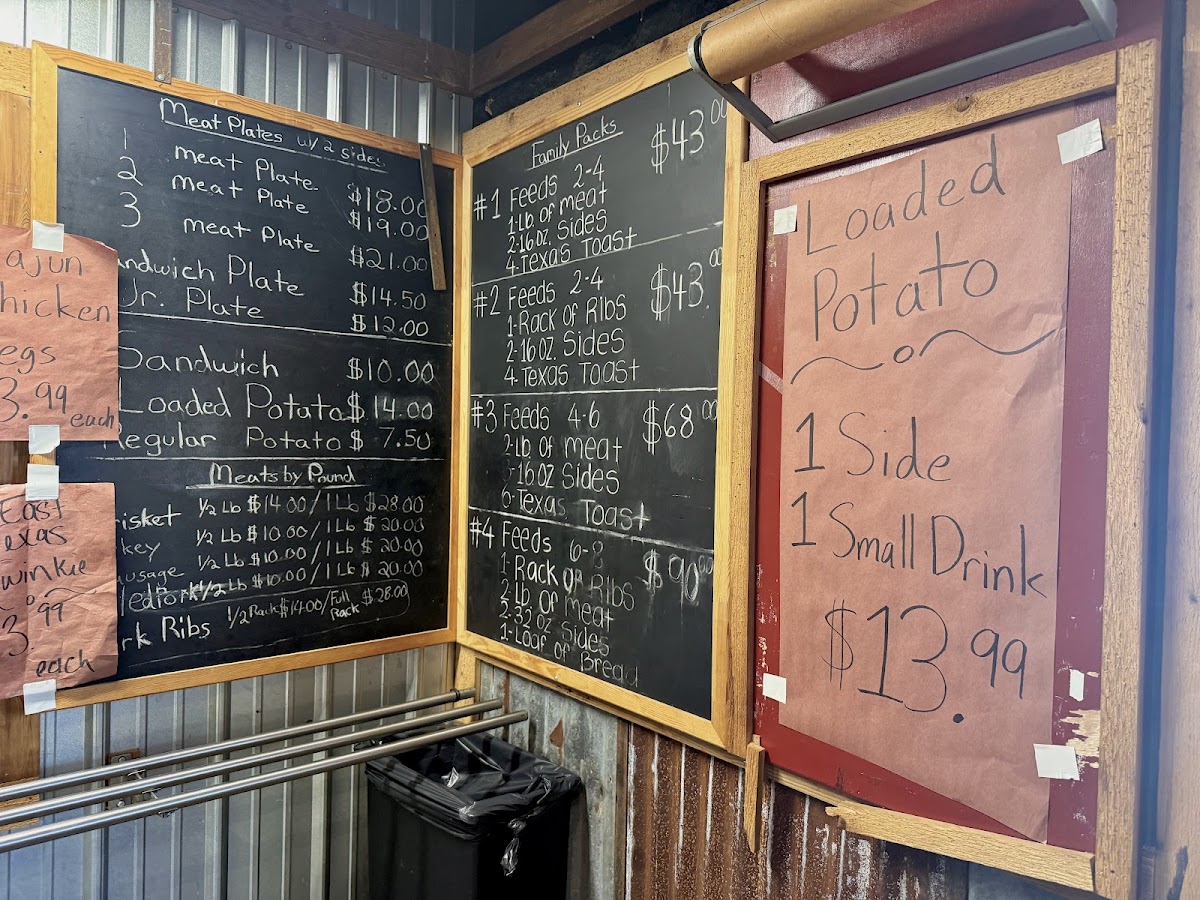 Meat Plates w/ 2 sides
1 meat Plate $18.00
2 meat Plate $19.00
3 meat Plate $21.00
andwich Plate $14.50
Jr. Plate $12.00
Sandwich $10.00
Loaded Potato $14.00
Regular Potato $ 7.50
Meats by Pound
isket 1/2 Lb $14.00/1 Lb $28.00
key 1/2 Lb $10.00/1 Lb $20.00
ausage 1/2 Lb $10.00/1 Lb $ 20.00
1/2 Lb $10.00/1 Lb $ 20.00
rk Ribs 1/2 Rack $14.00/Full Rack $28.00
ajun
hicken
egs
3.99
each
East
exas
winkie
3.99
each
Family Packs
#1 Feeds 2-4 $43.00
1-Lb. of meat
2-16 oz. Sides
4-Texas Toast
#2 Feeds 2-4 $43.00
1-Rack of Ribs
2-16 oz. Sides
4-Texas Toast
#3 Feeds 4-6 $68.00
2-Lb of meat
3-16 oz Sides
6-Texas Toast
#4 Feeds 6-8 $90.00
1 Rack of Ribs
2 Lb of meat
2-32 oz Sides
1-Loaf of Bread
Loaded
Potato
1 Side
1 Small Drink
$13.99